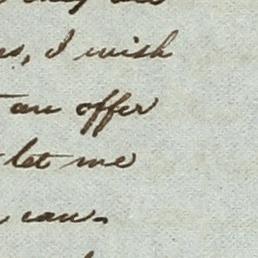 es, I wish
an offer
let me
can.